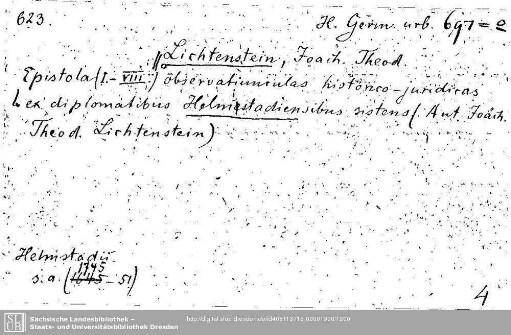 623.
H. Germ. urb. 697=e
Lichtenstein, Joach. Theod.
Epistola (I.-VIII.) observatiunculas historico-juridicas
ex diplomatibus Helmstadiensibus sistens (Aut. Joach.
Theod. Lichtenstein)
Helmstadii
1745
s. a. (1645-51)
4
SLUB
Sächsische Landesbibliothek –
Staats- und Universitätsbibliothek Dresden